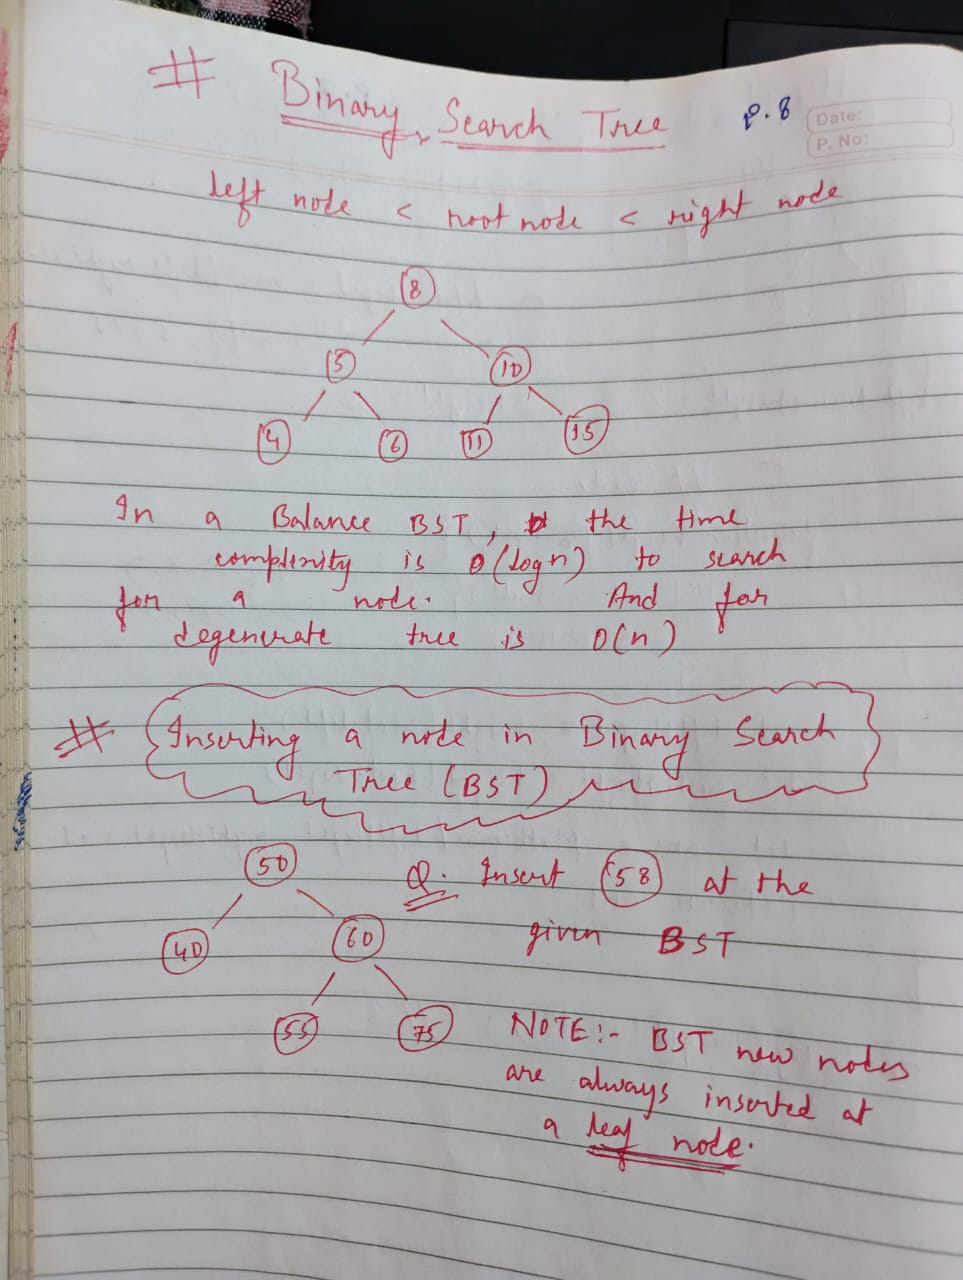 # Binary Search Tree P.8
Date:
P. No:
left node < root node < right node
8
5 10
4 6 11 15
In a Balance BST, the time
complexity is O(logn) to search
for a node. And for
degenerate tree is O(n)
# Inserting a node in Binary Search
Tree (BST)
50
Q. Insert 58 at the
40 60
given BST
55 75
NOTE:- BST new nodes
are always inserted at
a leaf node.